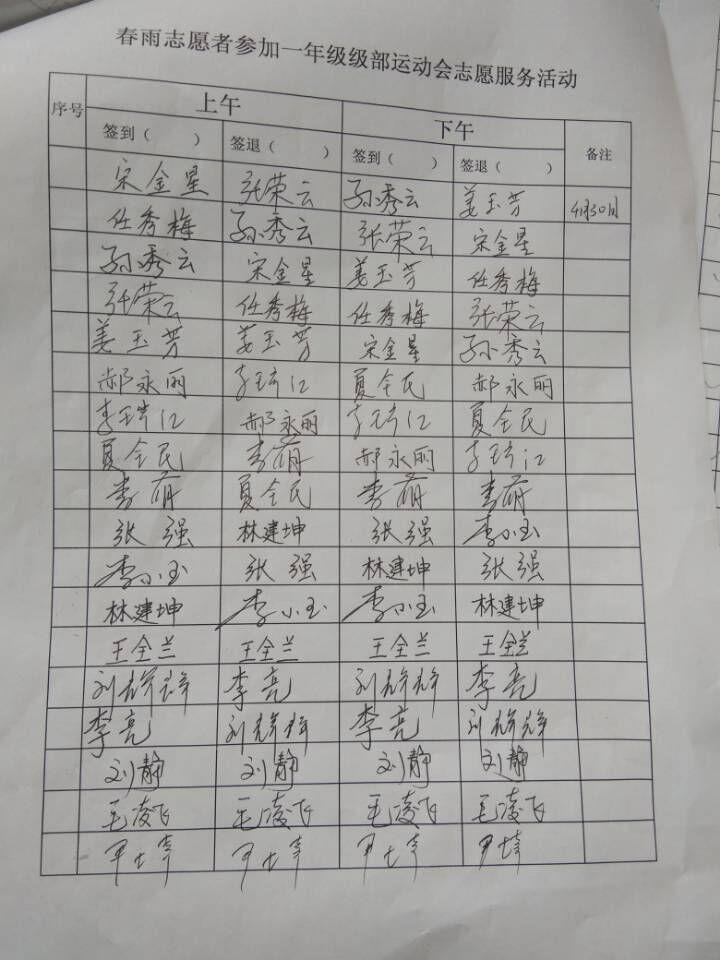 春雨志愿者参加一年级级部运动会志愿服务活动
序号 上午 下午 备注
签到（ ） 签退（ ） 签到（ ） 签退（ ）
宋金星 张荣云 孙秀云 姜玉芳 4月30日
任秀梅 孙秀云 张荣云 宋金星
孙秀云 宋金星 姜玉芳 任秀梅
张荣云 任秀梅 任秀梅 张荣云
姜玉芳 姜玉芳 宋金星 孙秀云
郝永丽 李瑞江 夏全民 郝永丽
李瑞江 郝永丽 李瑞江 夏全民
夏全民 李萌 郝永丽 李瑞江
李萌 夏全民 李萌 李萌
张强 林建坤 张强 李小玉
李小玉 张强 林建坤 张强
林建坤 李小玉 李小玉 林建坤
王全兰 王全兰 王全兰 王全兰
刘 李亮 刘 李亮
李亮 刘 李亮 刘
刘静 刘静 刘静 刘静
毛凌飞 毛凌飞 毛凌飞 毛凌飞